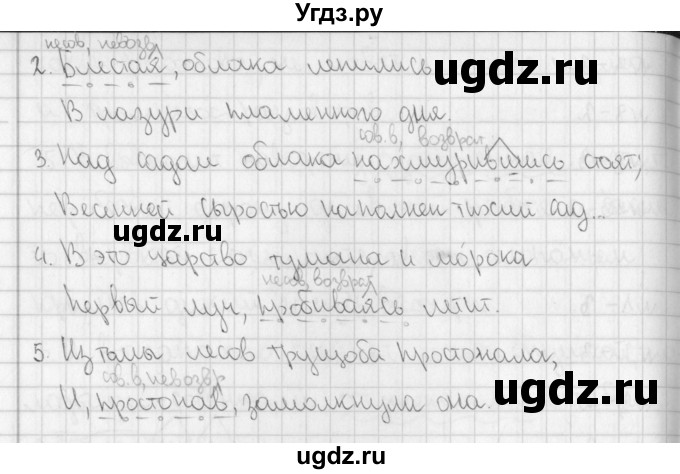 Угдз.ру
несов, невозвр
2. Блистая, облака лепились
В лазури пламенного дня.
сов.в, возврат.
3. Над садам облака нахмурившись стоят;
Весенней сыростью наполнен тихий сад...
ugdz.ru ugdz.ru
4. В это царство тумана и мо́рока
несов, возврат
Первый луч, пробиваясь летит.
5. Из тьмы лесов трущоба простонала,
сов.в, невозвр
И, простонав, замолкнула она.
ugdz.ru ugdz.ru
ugdz.ru